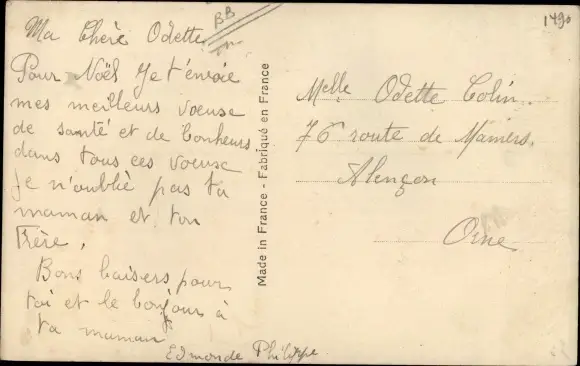 Ma Chère Odette
BB
Pour Noël je t'envoie
mes meilleurs voeuse
de santé et de bonheurs.
dans tous ces voeuse
je n'oublie pas ta
maman et ton
Frère,
Bons baisers pour
toi et le bonjour à
ta maman
Edmonde Philippe
Made in France - Fabriqué en France
1490
Melle Odette Colin.
76 route de Mamers.
Alençon
Orne